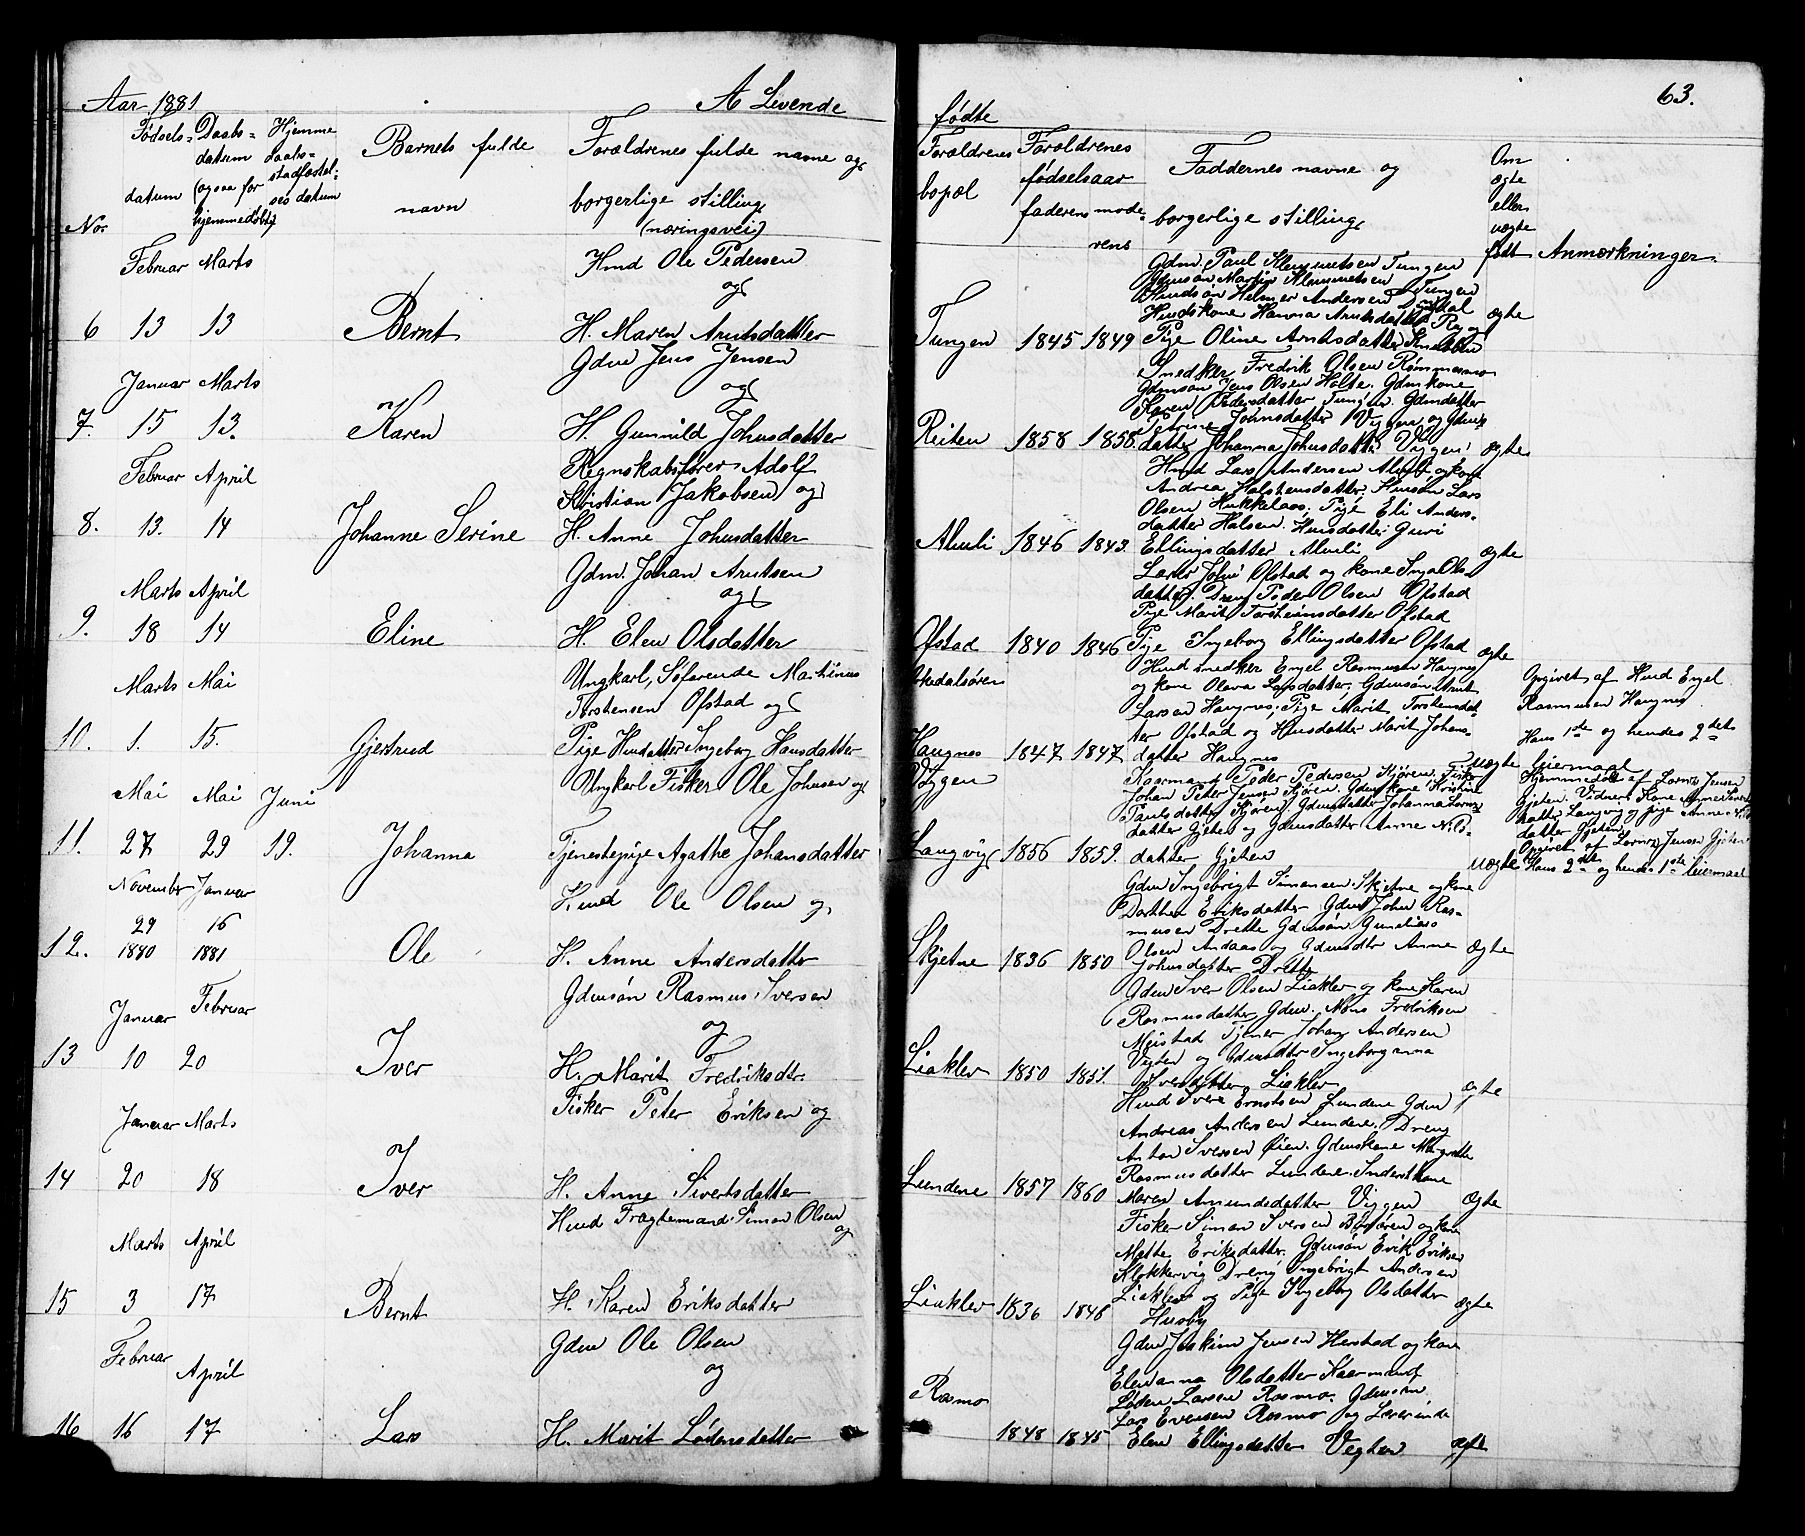 Aar 1881
A Levende
No.
Fødsels-
datum
Daabs-
datum
(ogsaa for
hjemmedøbte)
Hjemme
daabs-
stadfæstel-
ses datum
Barnets fulde
navn
Forældrenes fulde navne og
borgerlige stilling
(næringsvei)
Februar Marts
6 13 13
Bernt
Hmd Ole Pedersen
og
H. Maren Arntsdatter
Januar Marts
7. 15 13.
Karen
Gdm Jens Jensen
og
H. Gunnild Johnsdatter
Februar April
8. 13. 14
Johanne Serine
Regnskabsfører Adolf
Kristian Jakobsen og
H. Anne Johnsdatter
Marts April
9. 18 14
Eline
Gdm. Johan Arntsen
og
H. Elen Olsdatter
Marts Mai
10. 1. 15.
Gjertrud
Ungkarl, Søfarende Martinus
Torstensen Ofstad og
Pige Husdatter Ingeborg Hansdatter
Mai Mai Juni
11. 27 29 19.
Johanna
Ungkarl Fisker Ole Johnsen og
Tjenestepige Agathe Johansdatter
November Januar
29 16
12. 1880 1881
Ole
Hmd Ole Olsen og
H. Anne Andersdatter
Januar Februar
13 10 20
Iver
Gdmsøn Rasmus Iversen
og
H. Marit Fredriksdtr.
Januar Marts
14 20 18
Iver
Fisker Peter Eriksen og
H. Anne Sivertsdatter
Marts April
15 3 17
Bernt
Hmd Fragtemand Simon Olsen
og
H. Karen Eriksdatter
Februar April
16 16 17
Lars
Gdm Ole Olsen
og
H. Marit Lodensdatter
63.
fødte
Forældrenes
bopæl
Forældrenes
fødselsaar
faderens moderens
Faddernes navne og
borgerlige stilling
Om
ægte
eller
uægte
født
Anmærkninger
Gdm. Paul Klemmetsen Tungen
Gdmsøn Martin Klemmetsen Tungen
Husdsøn Helmer Andersen
Husdskone Hanna Arntsdatter
Pige Oline Arntsdatter
Tungen 1845 1849
ægte
Snedker Fredrik Olsen Rømmesmo
Gdmsøn Jens Olsen Holte. Gdmkone
Karen Pedersdatter Tungen Gdmdatter
Petrine Johnsdatter Viggen og Gdms
datter Johanna Johnsdatter Viggen
Reiten 1858 1858
ægte
Hmd Lars Andersen Almli og kone
Andrea Halstensdatter. Husøn Lars
Olsen Hukkelaas; Pige Eli Anders-
datter Halsen. Husdatter Guri
Ellingsdatter Almli
Almli 1846 1843
ægte
Ofstad og kone
datter. Dreng Peder Olsen Ofstad
Pige Marit Torsteinsdatter Ofstad
Pige Ingeborg Ellingsdatter Ofstad
Ofstad 1840 1846
ægte
Hmd Snedker Engel Rasmussen Haugnes
og kone Olava Larsdatter; Gdmsøn Arnt
Larsen Haugnes; Pige Marit Torsteinsdat-
ter Ofstad og Husdatter Marit Johans-
datter Haugnes
Haugnes 1847 1847
uægte
Opgivet af Hmd Engel
Rasmussen Haugnes
Hans 1ste og hendes 2det
leiermaal
Viggen
Kaarmand Peder Pedersen Kjøren. Fisker
Johan Peter Jensen Kjøren. Gdmkone Kristine
Paulsdatter Kjøren, Gdmsdatter Johanna Lornts
datter Gjeten og Gdmsdatter Anne Nils-
datter Gjeten
Langvig 1856 1859.
uægte
Hjemmedøbt af Lornts Jensen
Gjeten. Vidner: Kone Anne
datter Langvig og pige Anne Nils
datter Gjeten
Opgivet af Lornts Jensen Gjeten
Hans 2det og hendes 1ste leiermaal
Gdm Ingebrigt Simonsen Skjetne og kone
Dorthea Eriksdatter Gdm John Ras-
mussen Drette Gdmsøn
Olsen Andaas og Gdmsdtr Anne
Johnsdatter Drette
Skjetne 1836 1850
ægte
Gdm Iver Olsen Liaklev og kone Karen
Rasmusdatter Gdm. Mons Fredriksen
Mjistad Tjener Johan Andersen
Vegten og Gdmsdtr Ingeborganna
Iversdatter Liaklev
Liaklev 1850 1851.
ægte
Hmd Iver Erntsen Lundene Gdm
Andreas Andersen Lundene. Dreng
Anton Iversen Øien. Gdmskone Margrethe
Rasmusdatter Lundene. Inderstkone
Maren Amundsdatter Viggen
Lundene 1857 1860
ægte
Fisker Simon Iversen Børsøren og kone
Mette Eriksdatter. Gdmsøn Erik Eriksen
Klokkervig Dreng Ingebrigt Andersen
Liaklev og Pige Ingeborg Olsdatter
Husby
Liaklev 1836 1848
ægte
Gdm Joakim Jensen Herstad og kone
Elenanna Olsdatter Kaarmand
Loden Larsen Rosmo. Gdmsøn
Lars Evensen Rosmo og Lærerinde
Elen Ellingsdatter Vegten
Rosmo
1848 1845
ægte